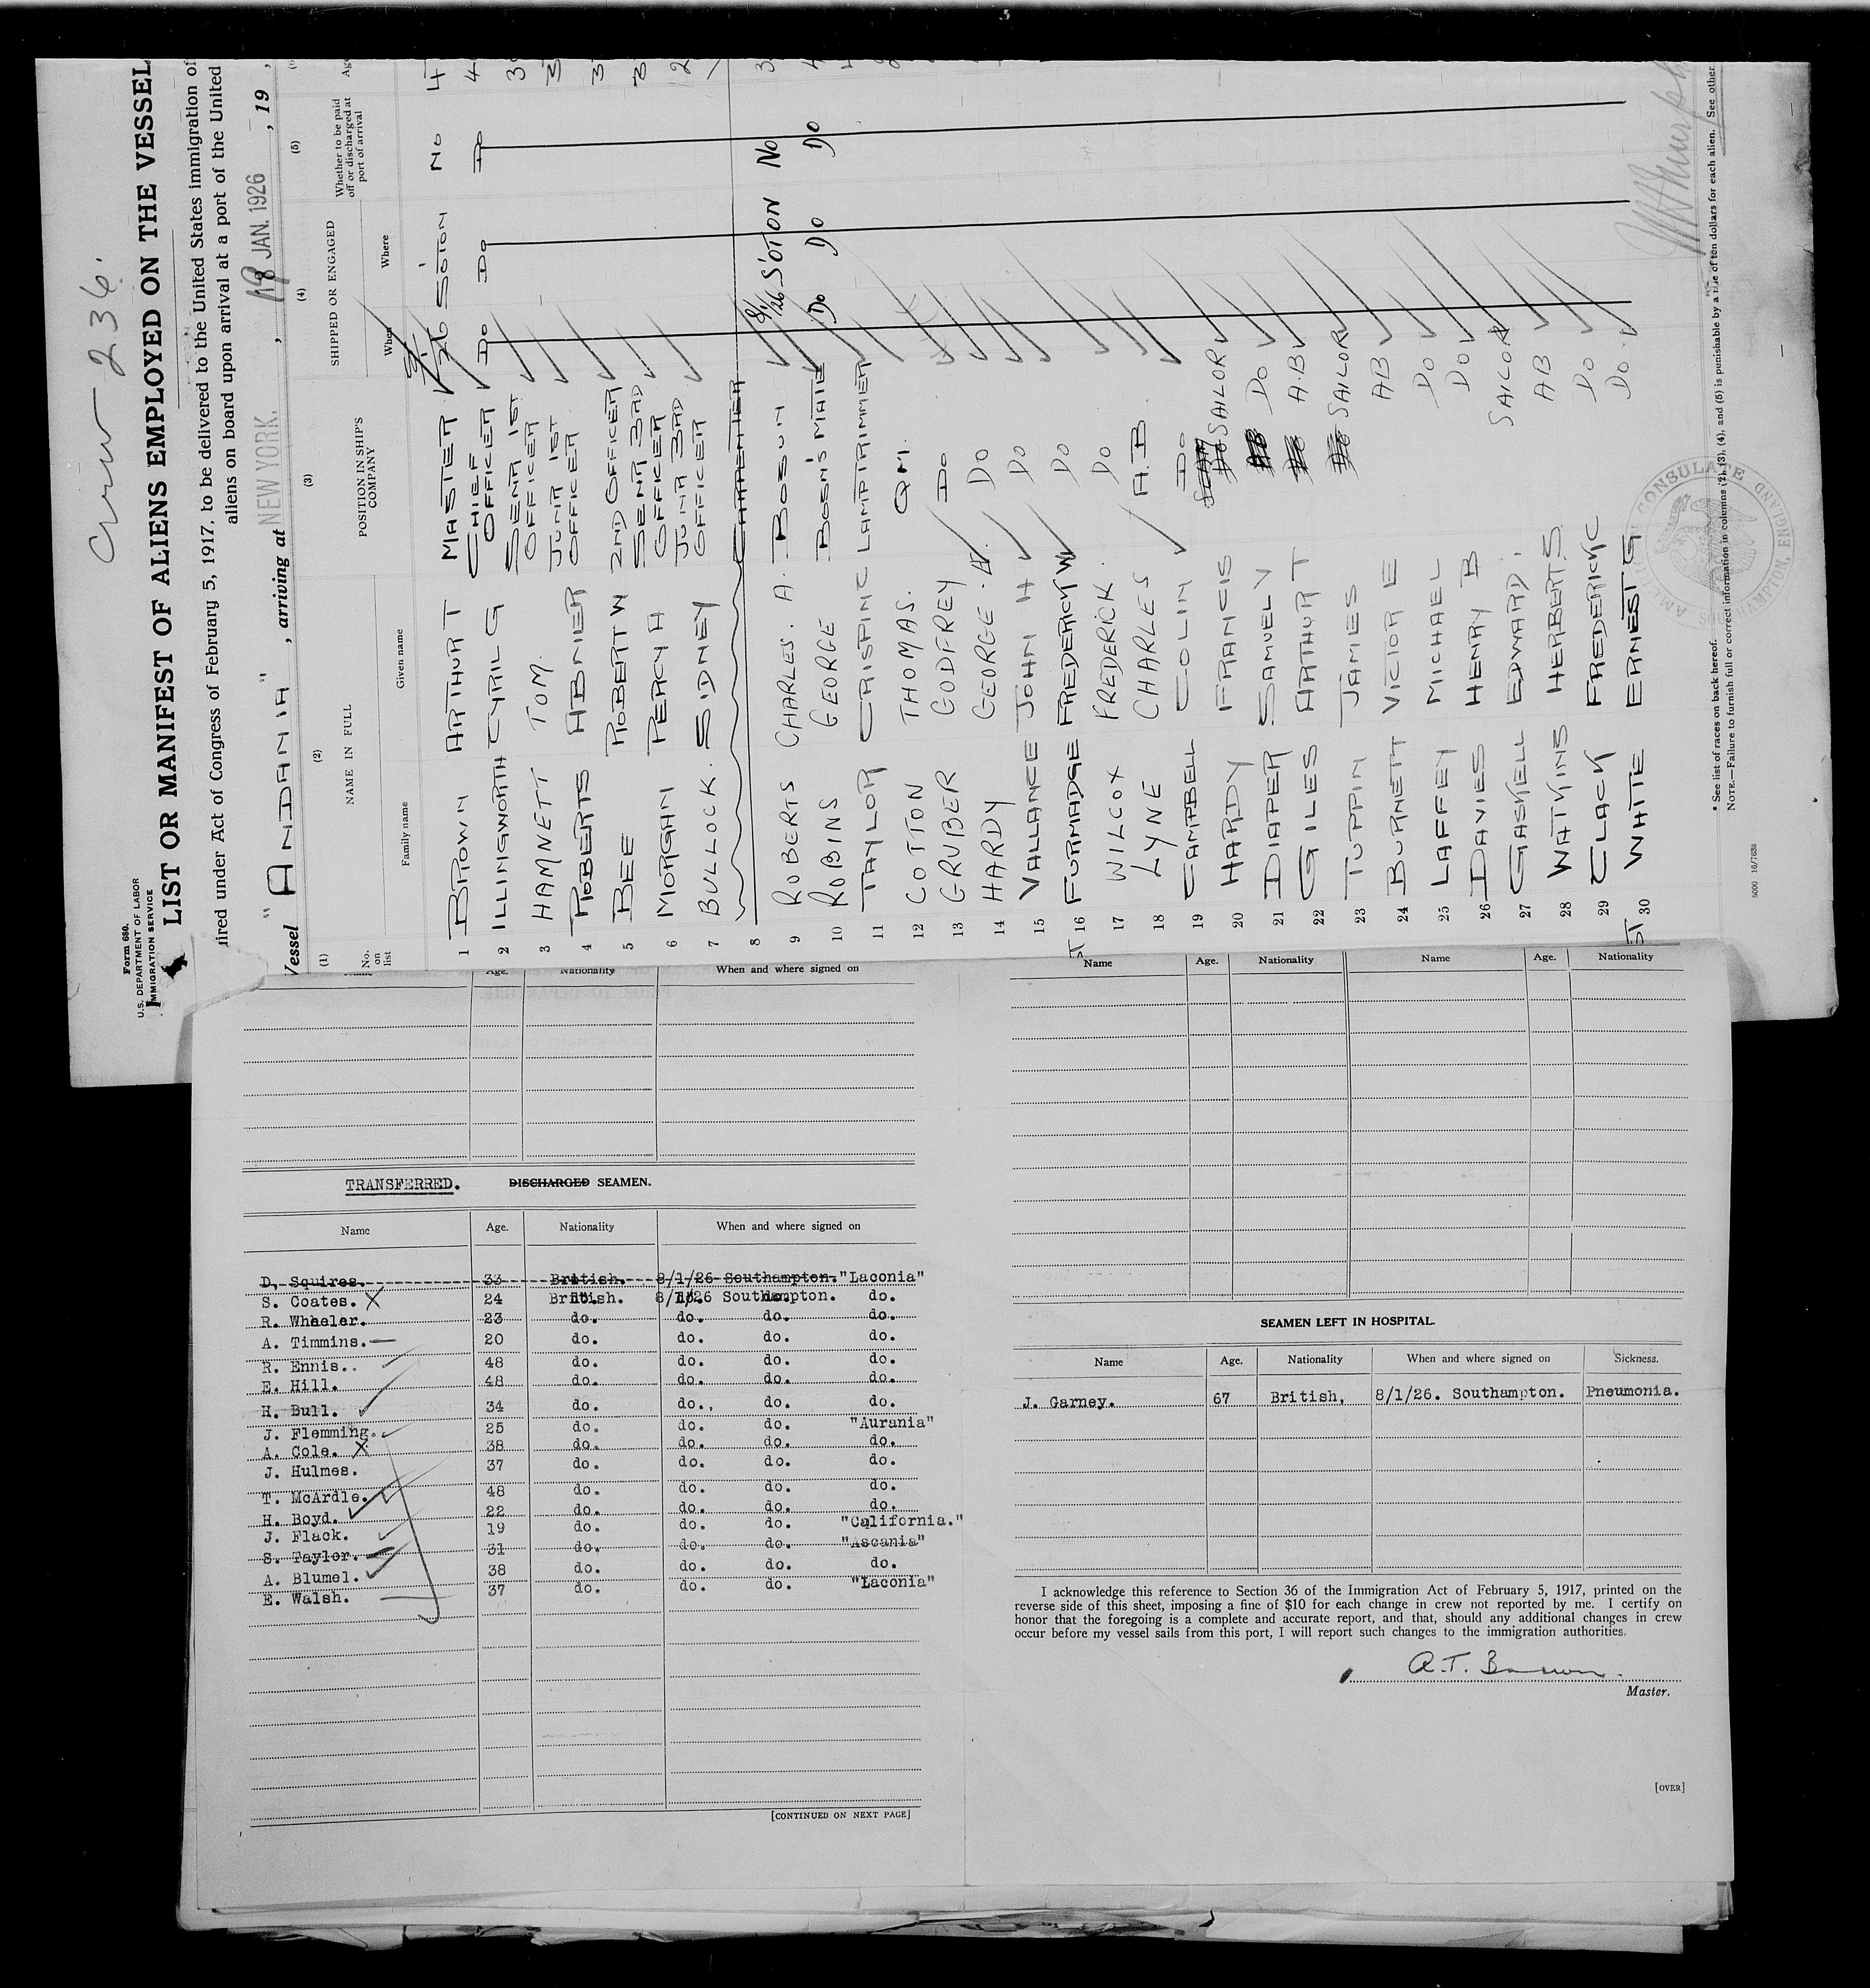 Crew 236.
Form 680.
U.S. DEPARTMENT OF LABOR
IMMIGRATION SERVICE
LIST OR MANIFEST OF ALIENS EMPLOYED ON THE VESSEL
ired under Act of Congress of February 5, 1917, to be delivered to the United States immigration of
aliens on board upon arrival at a port of the United
Vessel "ANDANIA", arriving at NEW YORK., 19 JAN. 1926, 19
(1) (2) (3) (4) (5)
No. on list NAME IN FULL POSITION IN SHIP'S COMPANY SHIPPED OR ENGAGED Whether to be paid off or discharged at port of arrival Age
Family name Given name When Where
1 BROWN ARTHUR T MASTER 8/1/26 S'OTON NO
2 ILLINGWORTH CYRIL G CHIEF OFFICER DO DO DO
3 HAMNETT TOM. SENR 1ST OFFICER
4 ROBERTS ABNER JUNR 1ST OFFICER
5 BEE ROBERT W 2ND OFFICER
6 MORGAN PERCY A SENR 3RD OFFICER
7 BULLOCK. SIDNEY JUNR 3RD OFFICER
8 CARPENTER
9 ROBERTS CHARLES. A. BOSUN 8/1/26 S'OTON NO
10 ROBINS GEORGE BOSN'S MATE DO DO DO
11 TAYLOR CRISPIN C LAMPTRIMMER
12 COTTON THOMAS. Q.M.
13 GRUBER GODFREY DO
14 HARDY GEORGE DO
15 VALLANCE JOHN H DO
16 FURMADGE FREDERICK W DO
17 WILCOX FREDERICK. DO
18 LYNE CHARLES A.B.
19 CAMPBELL COLIN DO
20 HARDY FRANCIS SAILOR
21 DIAPER SAMUEL V DO
22 GILES ARTHUR T A.B
23 TUPPIN JAMES SAILOR
24 BURNETT VICTOR E AB
25 LAFFEY MICHAEL DO
26 DAVIES HENRY B DO
27 GASKELL EDWARD. SAILOR
28 WATKINS HERBERT. S. AB
29 CLACK FREDERICK C DO
30 WHITE ERNEST G DO
AMERICAN CONSULATE
SOUTHAMPTON, ENGLAND
* See list of races on back hereof.
NOTE.—Failure to furnish full or correct information in columns (2), (3), (4), and (5) is punishable by a fine of ten dollars for each alien. See other
5000 16/7638
Age. Nationality When and where signed on
Name Age. Nationality Name Age. Nationality
TRANSFERRED. DISCHARGED SEAMEN.
Name Age. Nationality When and where signed on
D. Squires. 33 British. 8/1/26 Southampton. "Laconia"
S. Coates. X 24 British. 8/1/26 Southampton. do.
R. Wheeler. 23 do. do. do. do.
A. Timmins. 20 do. do. do. do.
R. Ennis.. 48 do. do. do. do.
E. Hill. 48 do. do. do. do.
H. Bull. 34 do. do., do. do.
J. Flemming. 25 do. do. do. "Aurania"
A. Cole. X 38 do. do. do. do.
J. Hulmes. 37 do. do. do. do.
T. McArdle. 48 do. do. do. do.
H. Boyd. 22 do. do. do. do.
J. Flack. 19 do. do. do. "California."
S. Taylor. 31 do. do. do. "Ascania"
A. Blumel. 38 do. do. do. do.
E. Walsh. 37 do. do. do. "Laconia"
[CONTINUED ON NEXT PAGE]
SEAMEN LEFT IN HOSPITAL.
Name Age. Nationality When and where signed on Sickness.
J. Garney. 67 British, 8/1/26. Southampton. Pneumonia.
I acknowledge this reference to Section 36 of the Immigration Act of February 5, 1917, printed on the
reverse side of this sheet, imposing a fine of $10 for each change in crew not reported by me. I certify on
honor that the foregoing is a complete and accurate report, and that, should any additional changes in crew
occur before my vessel sails from this port, I will report such changes to the immigration authorities.
A.T. Brown.
Master.
[OVER]